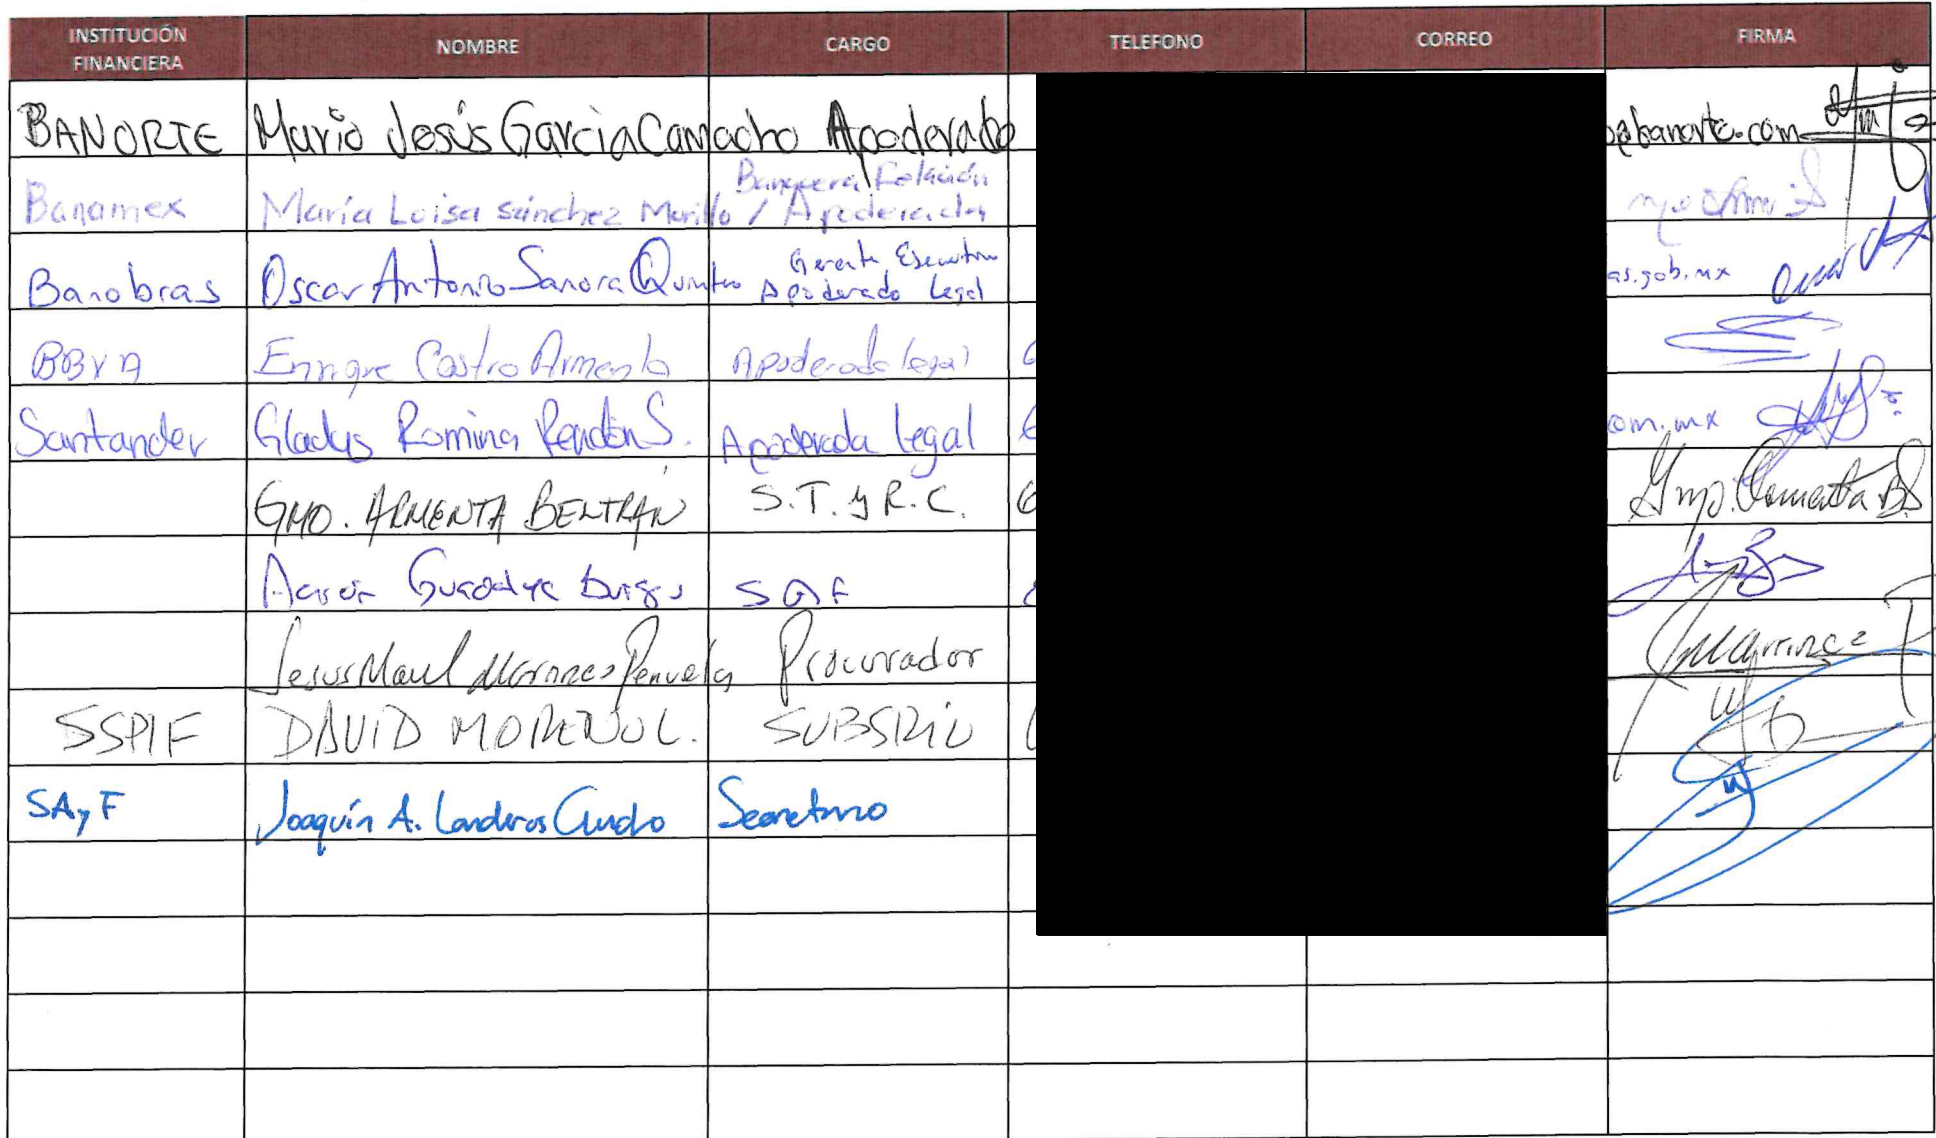 INSTITUCIÓN FINANCIERA NOMBRE CARGO TELEFONO CORREO FIRMA
BANORTE Mario Jesús García Camacho Apoderado @banorte.com
Banamex María Luisa Sánchez Murillo / Banquera Relación Apoderada
Banobras Oscar Antonio Sanora Gerente Ejecutivo Apoderado Legal as.gob.mx
BBVA Enrique Castro Armenta Apoderado legal
Santander Gladys Romina Rendón S. Apoderada Legal om.mx
GMO. ARMENTA BELTRÁN S.T. y R.C. Gmo. Armenta B.
Aarón Burgos SAF
Jesus Procurador
SSPIF DAVID MORENO L. SUBSRIO
SAyF Joaquín A. Landeros Secretario